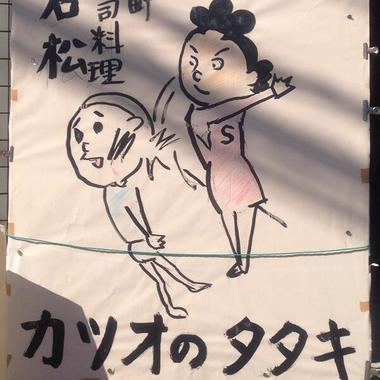 石松
司料理
S
カツオのタタキ